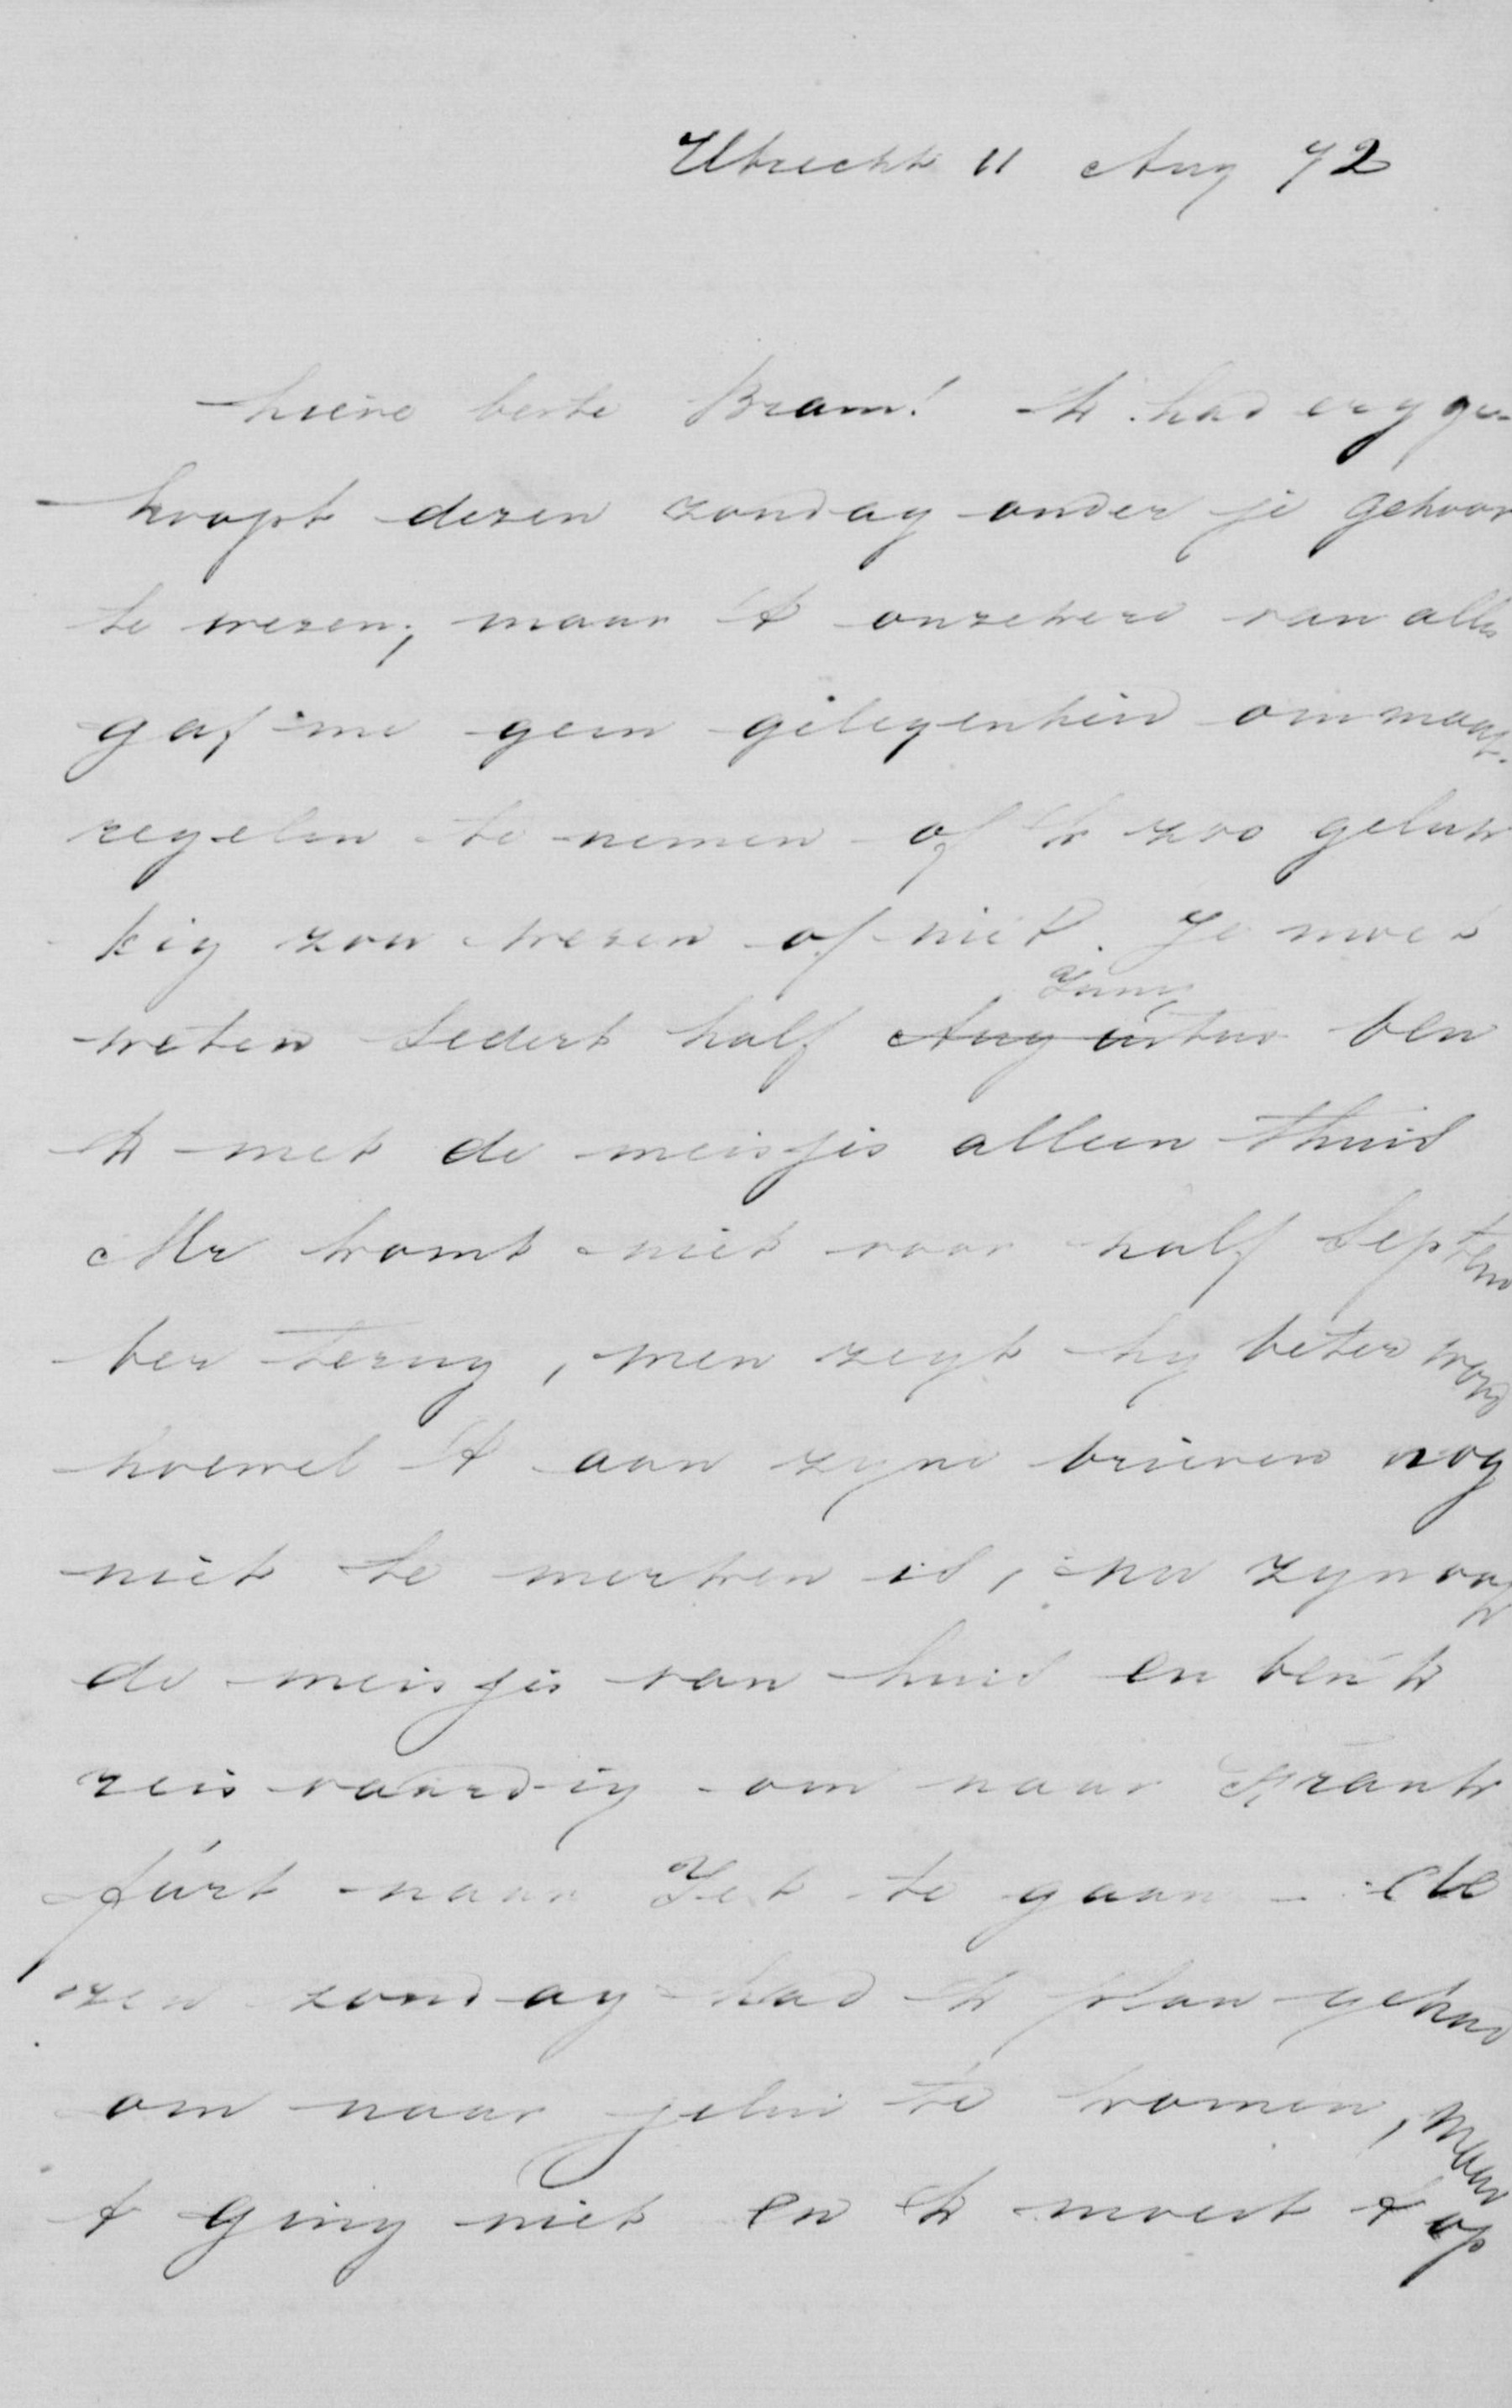 Utrecht 11 Aug 72
Lieve beste Bram! Ik had erg ge-
hoopt dezen zondag onder je gehoor
te wezen; maar 't onzekere van alles
gaf me geen gelegenheid om maat-
regelen te nemen of ik zoo geluk
kig zou wezen of niet. Je moet
Juny
weten sedert half Augustus ben
ik met de meisjes alleen thuis
Mr komt niet voor half Septem
ber terug, men zegt hy beter word
hoewel 't aan zyne brieven nog
niet te merken is, nu zyn ook
de meisjes van huis en ben ik
reisvaardig om naar Frank
furt naar Jet te gaan - de
zen zondag had ik plan gehad
om naar jelui te komen, maar
't ging niet en ik moest 't op